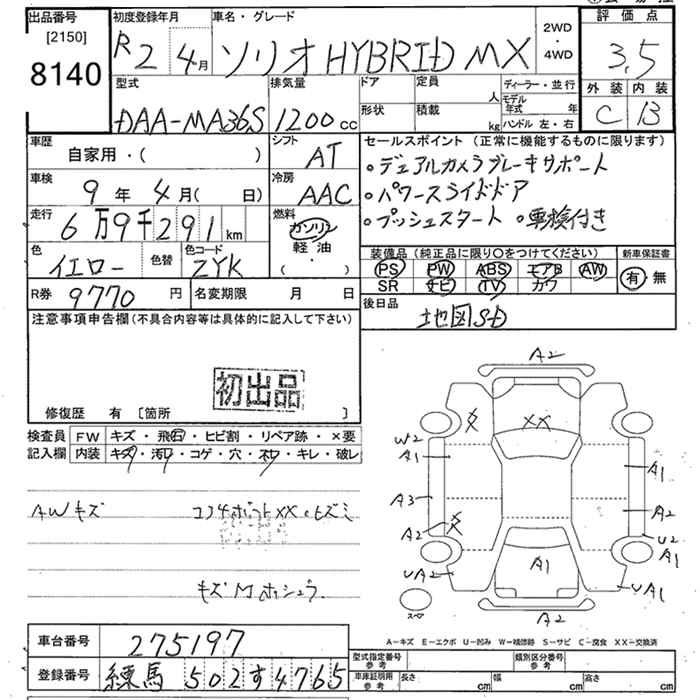 出品番号
[2150]
8140
初度登録年月
R2 4月
車名・グレード
ソリオ HYBRID MX
2WD
・
4WD
評価点
3,5
外装 内装
C B
型式
DAA-MA36S
排気量
1200 cc
ドア
形状
定員
人
積載
kg
ディーラー・並行
モデル年式 年
ハンドル 左・右
車歴
自家用・( )
シフト
AT
車検
9年 4月( 日)
冷房
AAC
走行
6万9千291 km
燃料
ガソリン
軽油
( ・ )
色
イエロー
色替
色コード
ZYK
R券 9770 円
名変期限 月 日
セールスポイント (正常に機能するものに限ります)
・デュアルカメラブレーキサポート
・パワースライドドア
・プッシュスタート ・車検付き
装備品(純正品に限り〇をつけてください)
PS PW ABS エアB AW
SR ナビ TV カワ
新車保証書
有・無
後日品
地図SD
注意事項申告欄(不具合内容等は具体的に記入して下さい)
初出品
修復歴 有 [箇所 ]
検査員記入欄
FW キズ・飛石・ヒビ割・リペア跡・×要
内装 キズ・汚れ・コゲ・穴・ネジ・キレ・破レ
AWキズ
コア4ポートXX・ヒズミ
キズ M ホシュウ
A2
XX
W2
A1
A1
A3
A2
A2
U2
UA2
A1
UA1
A2
スペア
A-キズ E-エクボ U-凹み W-補修跡 S-サビ C-腐食 XX-交換済
車台番号 275197
登録番号 練馬 502 す 4765
型式指定番号 参考
類別区分番号 参考
車庫証明用 参考
長さ cm
幅 cm
高さ cm